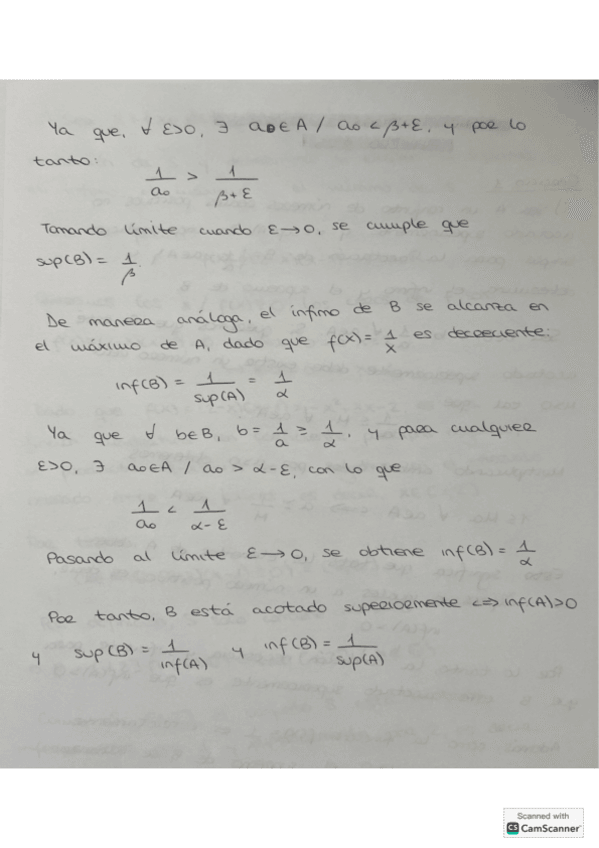 Ya que, ∀ ε>0, ∃ a₀∈A / a₀ < β+ε, y por lo
tanto:
1/a₀ > 1/(β+ε)
Tomando límite cuando ε→0, se cumple que
sup(B) = 1/β.
De manera análoga, el ínfimo de B se alcanza en
el máximo de A, dado que f(x)= 1/x es decreciente:
inf(B) = 1/sup(A) = 1/α
Ya que ∀ b∈B, b = 1/a ≥ 1/α, y para cualquier
ε>0, ∃ a₀∈A / a₀ > α-ε, con lo que
1/a₀ < 1/(α-ε)
Pasando al límite ε→0, se obtiene inf(B) = 1/α
Por tanto, B está acotado superiormente ⟺ inf(A)>0
y sup(B) = 1/inf(A) y inf(B) = 1/sup(A)
Scanned with
CS CamScanner